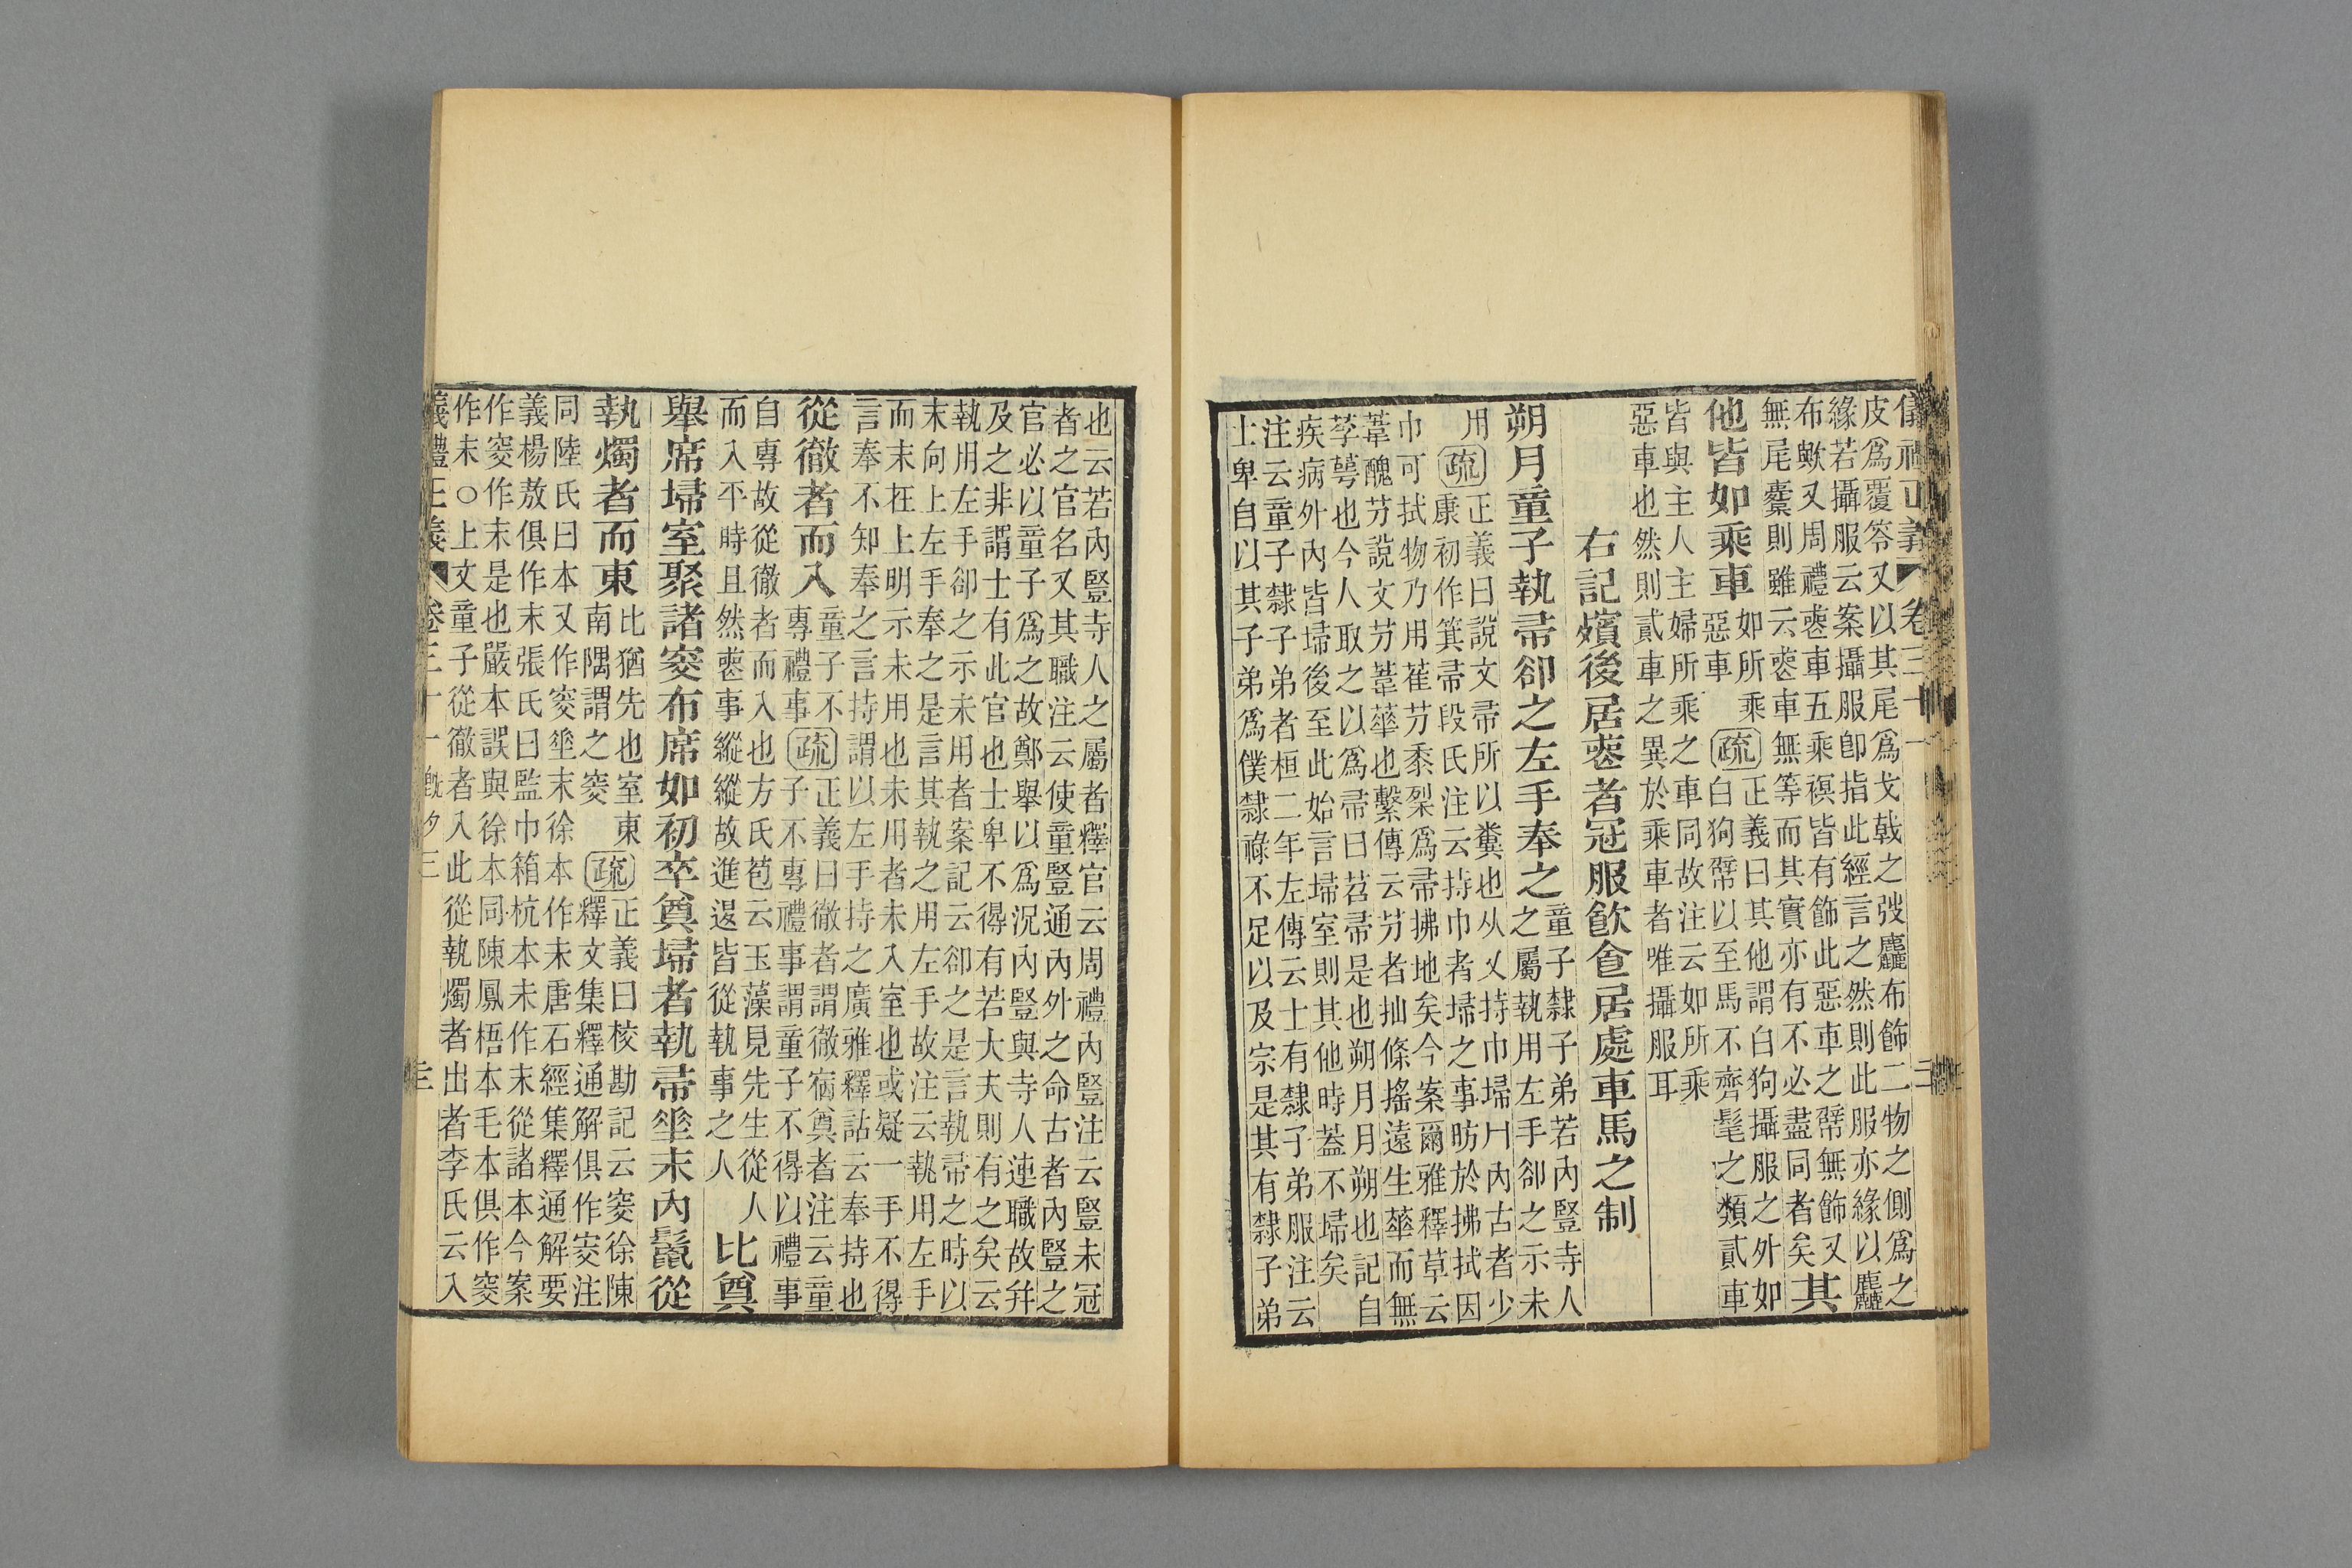 儀禮正義 卷三十一 二
皮爲覆笭又以其尾爲戈戟之弢麤布飾二物之側爲之
緣若攝服云案攝服卽指此經言之然則此服亦緣以麤
布歟又周禮䘮車五乘䙄皆有飾此惡車之幦無飾又
無尾櫜則雖云䘮車無等而其實亦有不必盡同者矣
其
他皆如乘車
如所乘
惡車
疏
正義曰其他謂白狗攝服之外如
白狗幦以至馬不齊髦之類貳車
皆與主人主婦所乘之車同故注云如所乘
惡車也然則貳車之異於乘車者唯攝服耳
右記殯後居䘮者冠服飮食居處車馬之制
朔月童子執帚卻之左手奉之
童子隸子弟若內豎寺人
之屬執用左手卻之示未
用
疏
正義曰說文帚所以糞也从又持巾埽冂內古者少
康初作箕帚段氏注云持巾者埽之事昉於拂拭因
巾可拭物乃用萑芀黍梨爲帚拂地矣今案爾雅釋草云
葦醜芀說文芀葦華也繫傳云芀者抽條搖遠生華而無
莩萼也今人取之以爲帚曰苕帚是也朔月月朔也記自
疾病外內皆埽後至此始言埽室則其他時蓋不埽矣
注云童子隸子弟者桓二年左傳云士有隸子弟服注云
士卑自以其子弟爲僕隸祿不足以及宗是其有隸子弟
也云若內豎寺人之屬者釋官云周禮內豎注云豎未冠
者之官名又其職注云使童豎通內外之命古者內豎之
官必以童子爲之故鄭舉以爲況內豎與寺人連職故幷
及之非謂士有此官也士卑不得有若大夫則有之矣云
執用左手卻之示未用者案記云卻之是言執帚之時以
末向上左手奉之是言其執之用左手故注云執用左手
而末在上明示未用也未用者未入室也或疑一手不得
言奉不知奉之言持謂以左手持之廣雅釋詁云奉持也
從徹者而入
童子不
專禮事
疏
正義曰徹者謂徹宿奠者注云童
子不專禮事謂童子不得以禮事
自專故從徹者而入也方氏苞云玉藻見先生從人
而入平時且然䘮事縱縱故進退皆從執事之人
比奠
舉席埽室聚諸窔布席如初卒奠埽者執帚垂末內鬣從
執燭者而東
比猶先也室東
南隅謂之窔
疏
正義曰校勘記云窔徐陳
釋文集釋通解俱作窔注
同陸氏曰本又作窔垂末徐本作未唐石經集釋通解要
義楊敖俱作末張氏曰監巾箱杭本未作末從諸本今案
作窔作末是也嚴本誤與徐本同陳鳳梧本毛本俱作窔
作未○上文童子從徹者入此從執燭者出者李氏云入
義禮正義 卷三十一 旣夕三